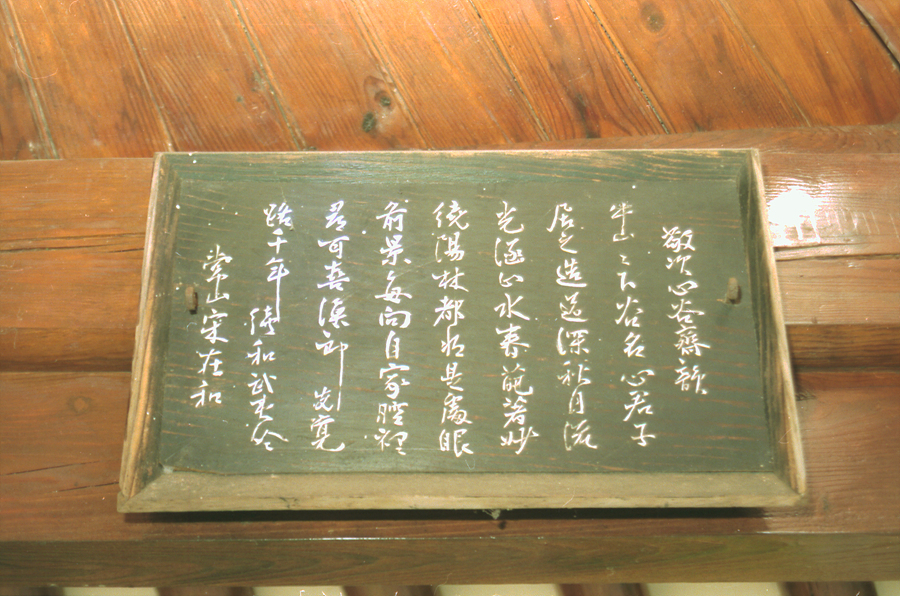 敬次心谷齋韻
牛山之下谷名心君子
居之造道深秋月流
光涵止水春葩著妙
繞陽林都將是處眼
前景每向自家腔裡
尋可喜溪 先覺
路千年 和武夷吟
常山宋在和